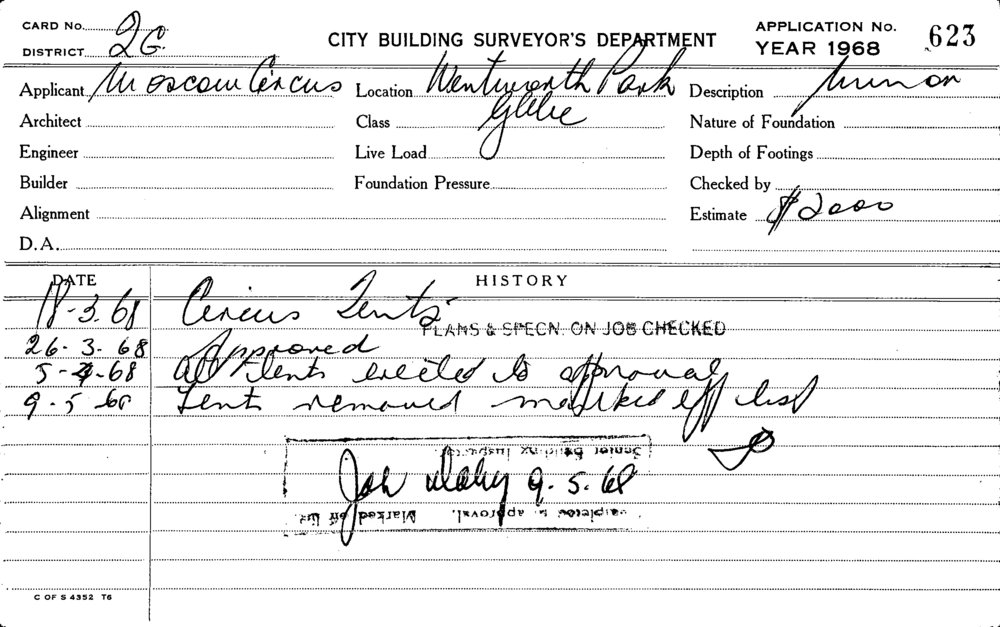 CARD No.
DISTRICT 2G.
CITY BUILDING SURVEYOR'S DEPARTMENT
APPLICATION No. 623
YEAR 1968
Applicant Moscow Circus Location Wentworth Park Description
Architect Class Glebe Nature of Foundation
Engineer Live Load Depth of Footings
Builder Foundation Pressure Checked by
Alignment Estimate $2000
D.A.
DATE HISTORY
18-3.68 Circus Tents
PLANS & SPECN. ON JOB CHECKED
26.3.68 Approved
5-4-68 All tents erected to approval
9.5.68 Tents removed marked off list
Senior Building Inspector.
9.5.68
Completed to approval. Marked off list.
C OF S 4352 T6